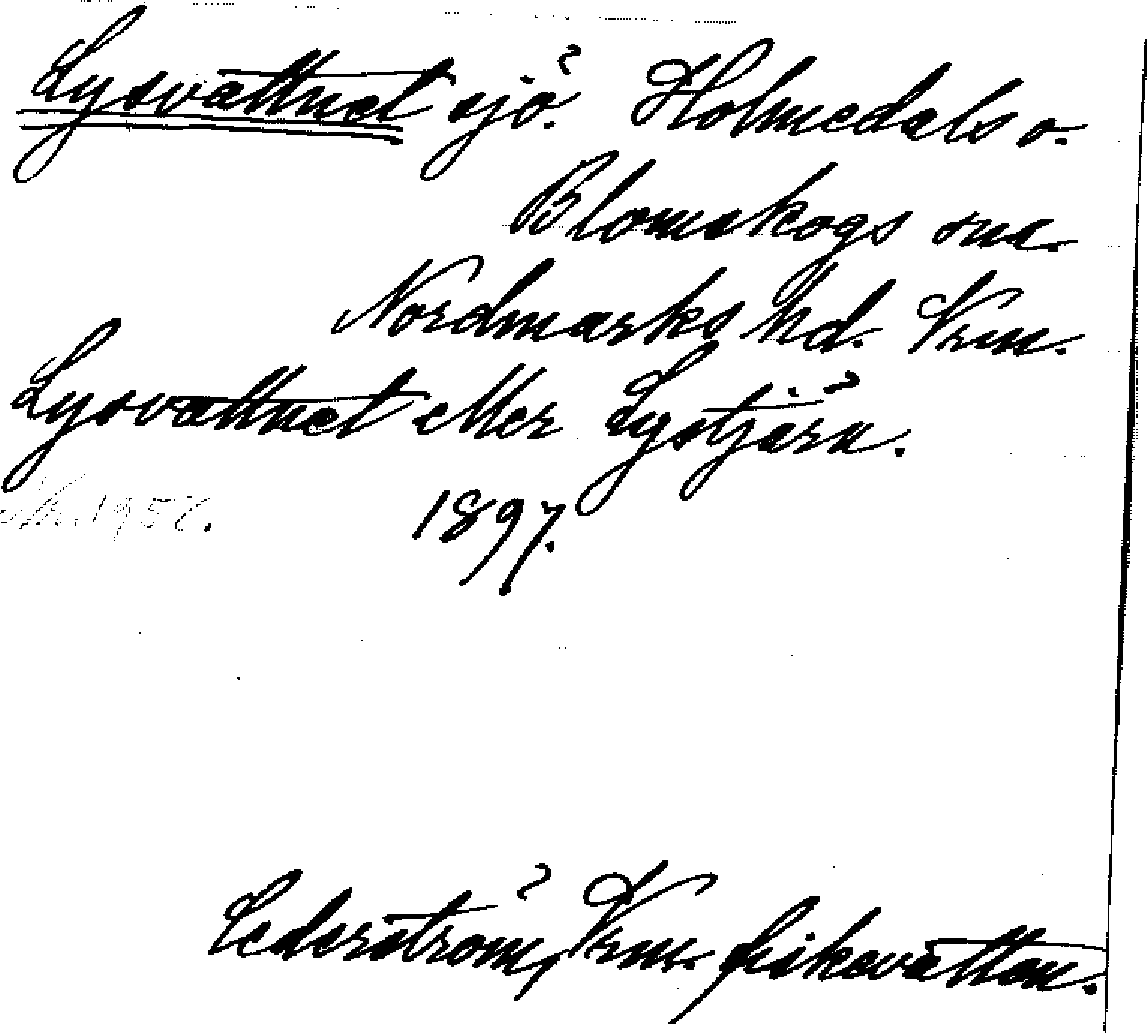 Lysvattnet sjö. Holmedals o.
Blomskogs snr.
Nordmarks hd. Vrm.
Lysvattnet eller Lystjärn.
1957. 1897.
Cederström, Vrm. fiskevatten.